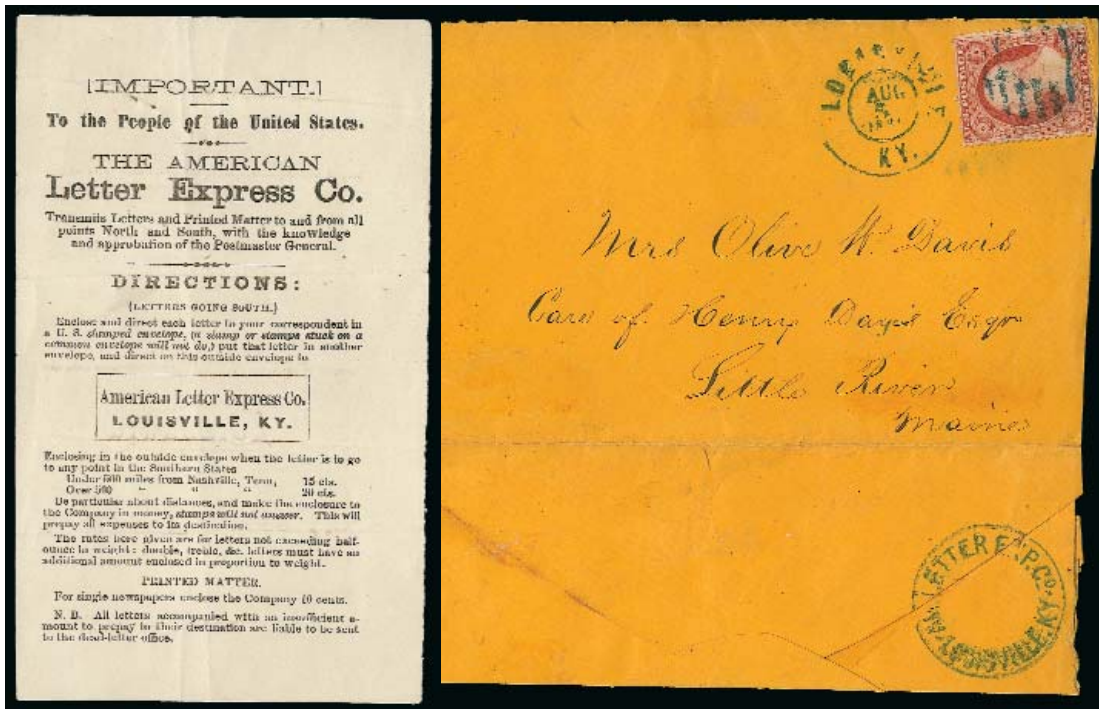 [IMPORTANT.]
To the People of the United States.
THE AMERICAN
Letter Express Co.
Transmits Letters and Printed Matter to and from all
points North and South, with the knowledge
and approbation of the Postmaster General.
DIRECTIONS:
(LETTERS GOING SOUTH.)
Enclose and direct each letter to your correspondent in
a U. S. stamped envelope, (a stamp or stamps stuck on a
common envelope will not do,) put that letter in another
envelope, and direct on this outside envelope to
American Letter Express Co.
LOUISVILLE, KY.
Enclosing in the outside envelope when the letter is to go
to any point in the Southern States
Under 500 miles from Nashville, Tenn, 15 cts.
Over 500 " " " 20 cts.
Be particular about distances, and make the enclosure to
the Company in money, stamps will not answer. This will
prepay all expenses to its destination.
The rates here given are for letters not exceeding half-
ounce in weight: double, treble, &c. letters must have an
additional amount enclosed in proportion to weight.
PRINTED MATTER.
For single newspapers enclose the Company 10 cents.
N. B. All letters accompanied with an insufficient a-
mount to prepay to their destination are liable to be sent
to the dead-letter office.
LOUISVILLE
AUG
5
KY.
Mrs Olive W. Davis
Care of Henry Davis Esqr
Little River
Maine
AM. LETTER EXP. CO.
LOUISVILLE, KY.